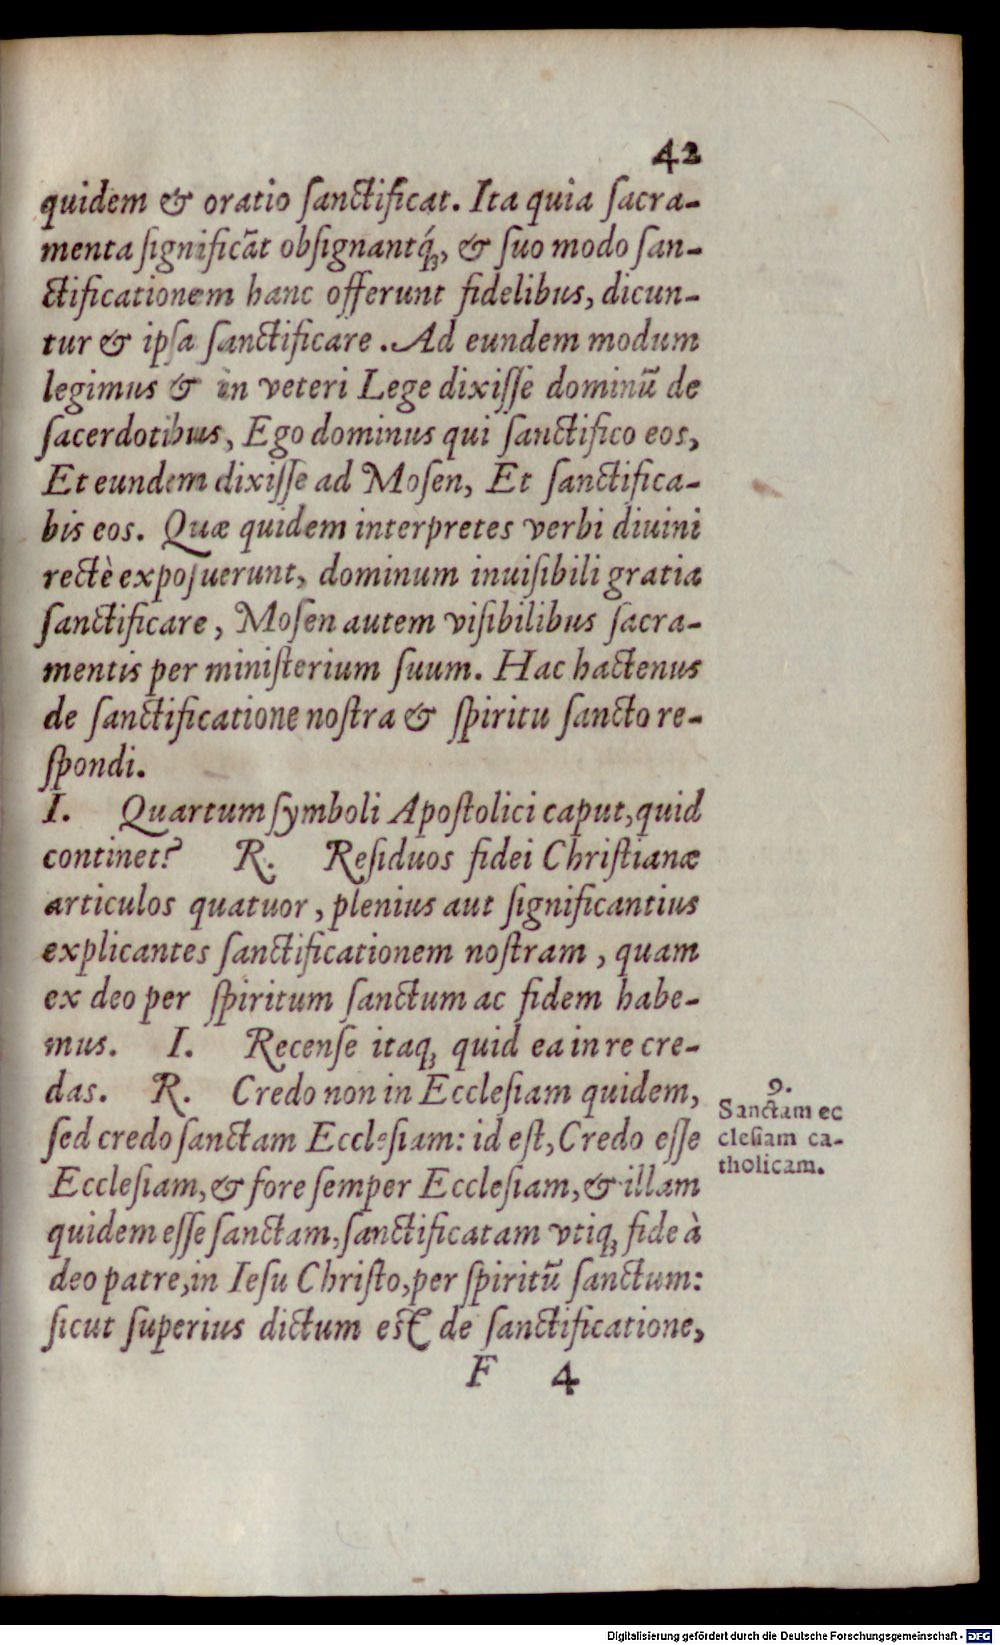 42
quidem & oratio ſanctificat. Ita quia ſacra-
menta ſignificāt obſignantq́ꝫ, & ſuo modo ſan-
ctificationem hanc offerunt fidelibus, dicun-
tur & ipſa ſanctificare. Ad eundem modum
legimus & in veteri Lege dixiſſe dominū de
ſacerdotibus, Ego dominus qui ſanctifico eos,
Et eundem dixiſſe ad Moſen, Et ſanctifica-
bis eos. Quæ quidem interpretes verbi diuini
rectè expoſuerunt, dominum inuiſibili gratia
ſanctificare, Moſen autem viſibilibus ſacra-
mentis per miniſterium ſuum. Hac hactenus
de ſanctificatione noſtra & ſpiritu ſancto re-
ſpondi.
I. Quartum ſymboli Apoſtolici caput, quid
continet? R. Reſiduos fidei Chriſtianæ
articulos quatuor, plenius aut ſignificantius
explicantes ſanctificationem noſtram, quam
ex deo per ſpiritum ſanctum ac fidem habe-
mus. I. Recenſe itaqꝫ quid ea in re cre-
das. R. Credo non in Eccleſiam quidem,
ſed credo ſanctam Eccleſiam: id eſt, Credo eſſe
Eccleſiam, & fore ſemper Eccleſiam, & illam
quidem eſſe ſanctam, ſanctificatam vtiqꝫ fide à
deo patre, in Ieſu Chriſto, per ſpiritū ſanctum:
ſicut ſuperius dictum eſt de ſanctificatione,
F 4
9.
Sanctam ec
cleſiam ca-
tholicam.
Digitalisierung gefördert durch die Deutsche Forschungsgemeinschaft - DFG